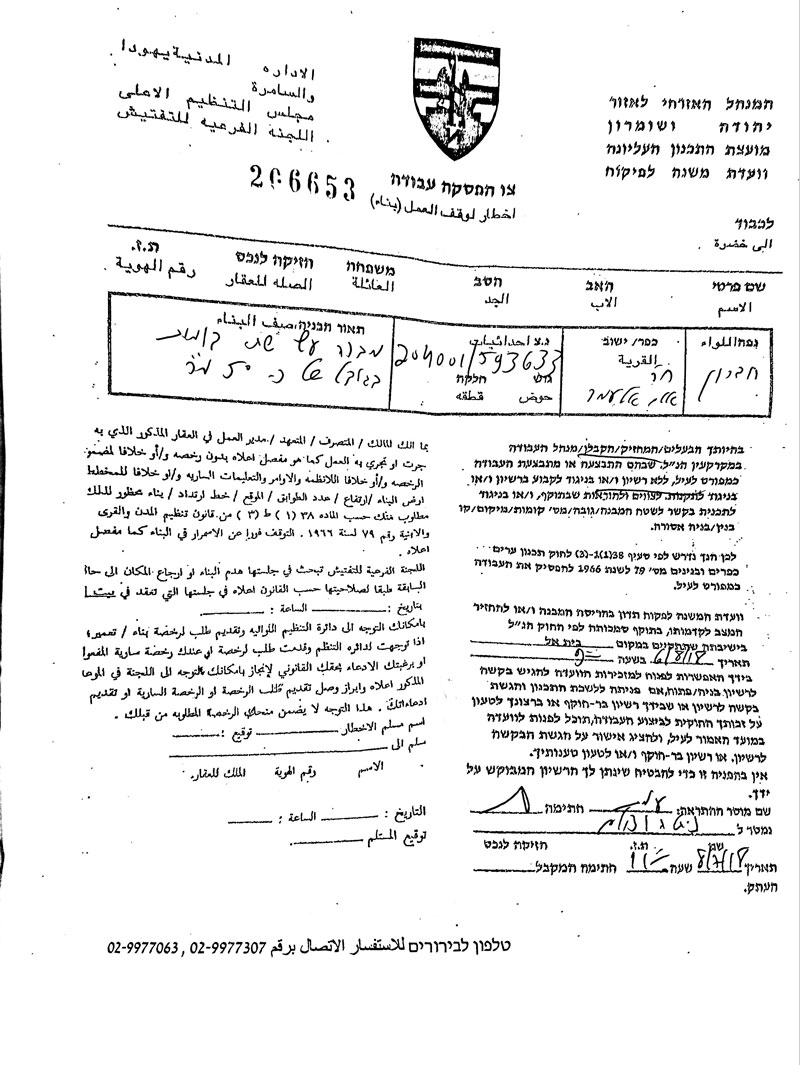 המנהל האזרחי לאזור
יהודה ושומרון
מועצת התכנון העליונה
וועדת משנה לפיקוח
الاداره المدنية يهودا
والسامرة
مجلس التنظيم الاعلى
اللجنة الفرعيه للتفتيش
צו הפסקה עבודה
اخطار لوقف العمل (بناء)
206653
לכבוד
الى حضرة
שם פרטי האב הסב משפחה חזיקה לנכס ת.ז.
الاسم الاب الجد العائلة الصله للعقار رقم الهوية
נפה/اللواء
חברון
כפר/ ישוב
القرية
נ.צ احداثيات
204001/593633
גוש חלקה
حوض قطعه
תאור הבניה/صيف البناء
מבנה
בגודל של כ- 50 מ"ר
בהיותך הבעלים/המחזיק/הקבלן/מנהל העבודה
במקרקעין הנ"ל. שבהם התבצעה או מתבצעת העבודה
כמפורט לעיל, ללא רשיון ו/או בניגוד לקבוע ברשיון ו/או
בניגוד לתקנות, לצווים ולהוראות שבתוקף, ו/או בניגוד
לתכנית בקשר לשטח המבנה/גובה/מס' קומות/מיקום/קו
בנין/בניה אסורה.
לכן הנך נדרש לפי סעיף 38(1)-(3) לחוק תכנון ערים
כפרים ובנינים מס' 79 לשנת 1966 להפסיק את העבודה
כמפורט לעיל.
וועדת המשנה לפקוח תדון בהריסת המבנה ו/או להחזיר
המצב לקדמותו, בתוקף סמכותה לפי החוק הנ"ל
בישיבתה שתתקיים במקום בית אל
תאריך 6/8/18 בשעה
בידך האפשרות לפנות למזכירות הוועדה להגיש בקשה
לרשיון, בניה/פתוח, אם פניתה ללשכת התכנון והגשת
בקשה לרשיון או שבידך רשיון בר-תוקף או ברצונך לטעון
על זכותך החוקית לביצוע העבודה, תוכל לפנות לוועדה
במועד האמור לעיל, ולהציג אישור על הגשת הבקשה
לרשיון, או רשיון בר-תוקף ו/או לטעון טענותיך.
אין בהפניה זו כדי להבטיח שינתן לך הרשיון המבוקש על
ידך.
שם מוסר ההתראה: חתימה
נמסר ל
שם ת.ז. חזיקה לנכס
תאריך 8/7/18 שעה חתימה המקבל
העתק.
بما انك المالك / المتصرف / المتعهد / مدير العمل في العقار المذكور الذي به
جرت او تجري به العمل كما هو مفصل اعلاه بدون رخصه و/أو خلافا لمضمون
الرخصه و/أو خلافا للانظمه والاوامر والتعليمات الساريه و/او خلافا للمخطط
ارض البناء /ارتفاع / عدد الطوابق / الموقع / خط ارتداد / بناء محظور لذلك
مطلوب منك حسب الماده ٣٨ (١) ط (٣) من قانون تنظيم المدن والقرى
والابنية رقم ٧٩ لسنة ١٩٦٦ . التوقف فورا عن الاسمرار في البناء كما مفصل
اعلاه .
اللجنة الفرعية للتفتيش تبحث في جلستها هدم البناء او ارجاع المكان الى حالته
السابقة طبقا لصلاحيتها حسب القانون اعلاه في جلستها التي تعقد في بيت ايل
بتاريخ: الساعة :
بامكانك التوجه الى دائرة التنظيم اللوائيه وتقديم طلب لرخصة بناء / تعمير؛
اذا توجهت لدائره التنظم وقدمت طلب لرخصة او عندك رخصة سارية المفعول
او برغبتك الادعاء بحقك القانوني لإنجاز بامكانك التوجه الى اللجنة في الموعد
المذكور اعلاه وابراز وصل تقديم طلب الرخصة او الرخصة السارية او تقديم
ادعاءاتك . هذا التوجه لا يضمن منحك الرخصة المطلوبه من قبلك .
اسم مسلم الاخطار توقيع :
سلم الى
الاسم رقم الهوية المالك للعقار.
التاريخ : الساعة :
توقيع المستلم
טלפון לבירורים للاستفسار الاتصال برقم 02-9977307 , 02-9977063